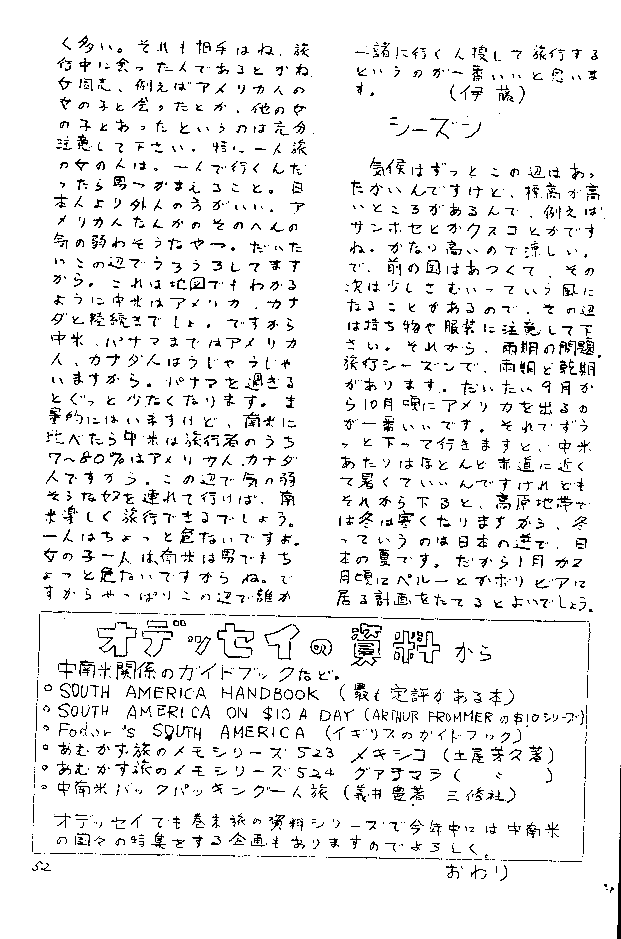 く多い。それも相手はね、旅
行中に会った人であるとかね
女同志、例えばアメリカ人の
女の子と会ったとか、他の女
の子とあったというのは充分
注意して下さい。特に一人旅
の女の人は。一人で行くんだ
ったら男つかまえること。日
本人より外人の方がいい。ア
メリカ人なんかのそのへんの
気の弱わそうなやつ。だいた
いこの辺でうろうろしてます
から。これは地図でもわかる
ように中米はアメリカ、カナ
ダと陸続きでしょ。ですから
中米、パナマまではアメリカ
人、カナダ人はうじゃうじゃ
いますから。パナマを過ぎる
とぐっと少なくなります。ま
量的にはいますけど、南米に
比べたら中米は旅行者のうち
7〜80%はアメリカ人、カナダ
人ですから。この辺で気の弱
そうな奴を連れて行けば、南
米楽しく旅行できるでしょう。
一人はちょっと危ないですよ。
女の子一人は、南米は男でもち
ょっと危ないですからね。で
すからやっぱりこの辺で誰か
一諸に行く人捜して旅行する
というのが一番いいと思いま
す。　　　　(伊藤)
シーズン
気候はずっとこの辺はあっ
たかいんですけど、標高が高
いところがあるんで、例えば
サンホセとかクスコとかです
ね。かなり高いので涼しい。
で、前の国はあつくて、その
次は少しさむいっていう風に
なることがあるので、その辺
は持ち物や服装に注意して下
さい。それから、雨期の問題。
旅行シーズンで、雨期と乾期
があります。だいたい9月か
ら10月頃にアメリカを出るの
が一番いいです。それでずう
っと下って行きますと、中米
あたりはほとんど赤道に近く
て暑くていいんですけれども
それから下ると、高原地帯で
は冬は寒くなりますから、冬
っていうのは日本の逆で、日
本の夏です。だから1月か2
月頃にペルーとかボリビアに
居る計画をたてるとよいでしょう。
オデッセイの資料から
中南米関係のガイドブックなど。
○ SOUTH AMERICA HANDBOOK (最も定評がある本)
○ SOUTH AMERICA ON $10 A DAY (ARTHUR FROMMERの$10シリーズ)
○ Fodor's SOUTH AMERICA (イギリスのガイドブック)
○ あむかす旅のメモシリーズ 523 メキシコ (土屋芽久著)
○ あむかす旅のメモシリーズ 524 グアテマラ ( 〃 )
○ 中南米バックパッキング一人旅 (義井豊著 三修社)
オデッセイでも巻末旅の資料シリーズで今年中には中南米
の国々の特集をする企画もありますのでよろしく。
52
おわり